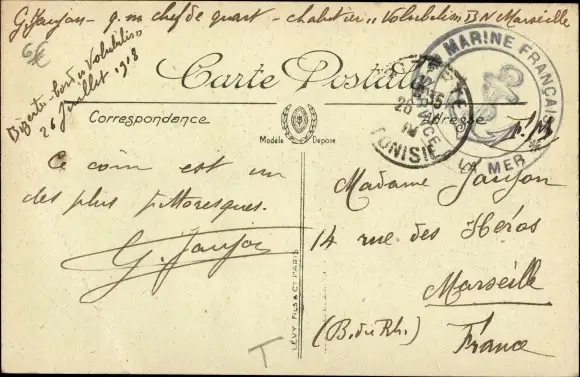 G. Jaujon - q. m chef de quart - chalutier "Volubilis" BN Marseille
6€
Bizerte - bord "Volubilis"
26 Juillet 1918
Carte Postale
Correspondance
Modèle Déposé
Adresse
MARINE FRANÇAISE
LA MER
TUNISIE
Ce coin est un
des plus pittoresques.
G. Jaujon
Madame Jaujon
14 rue des Héros
Marseille
(B. du Rh.)
France
LÉVY FILS & Cie PARIS
T